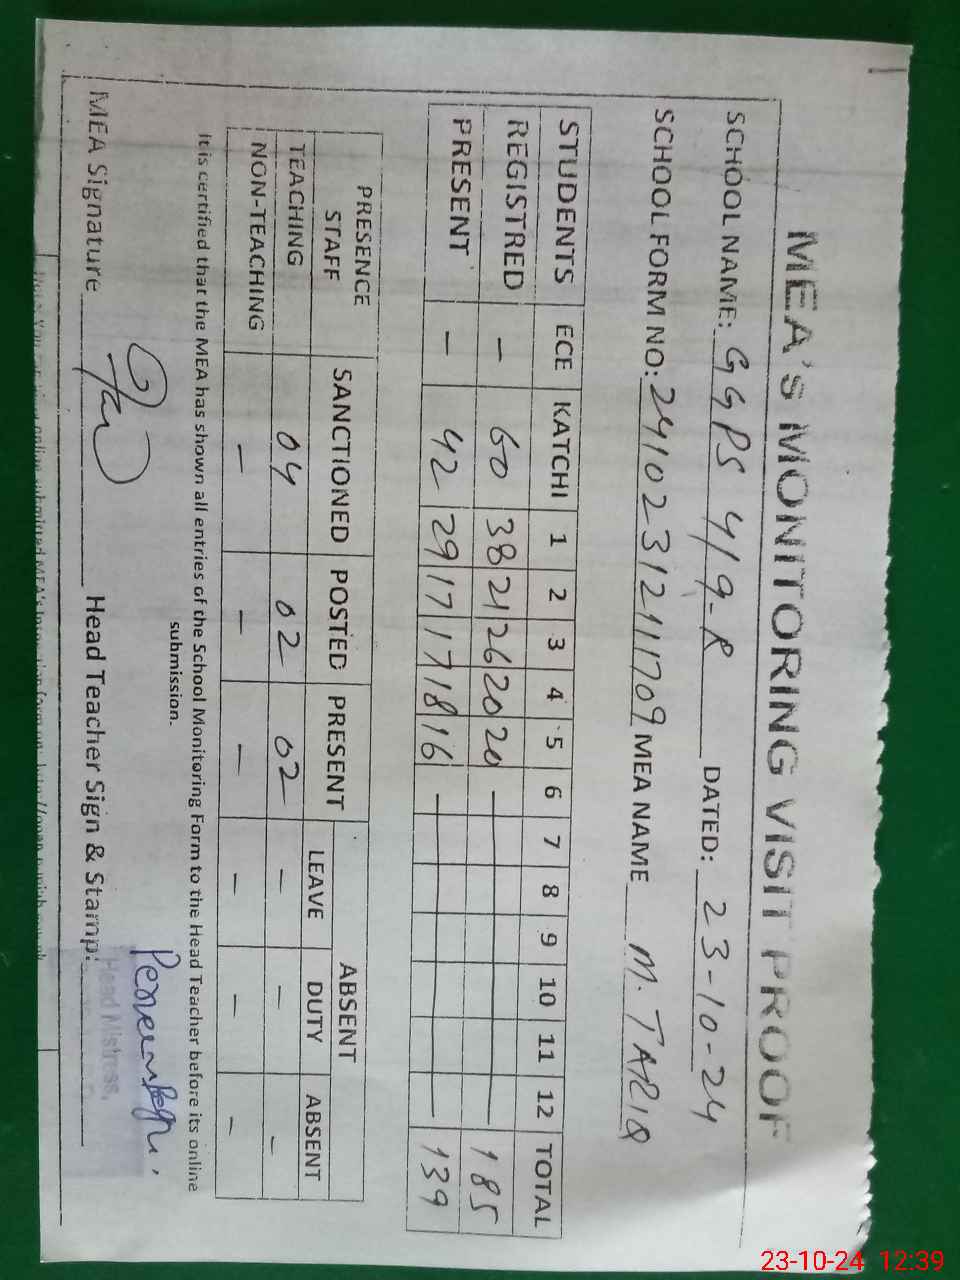 MEA'S MONITORING VISIT PROOF
SCHOOL NAME: GGPS 4/9-R DATED: 23-10-24
SCHOOL FORM NO: 24102312111709 MEA NAME M. TARIQ
STUDENTS ECE KATCHI 1 2 3 4 5 6 7 8 9 10 11 12 TOTAL
REGISTRED - 60 38 21 26 20 20 - 185
PRESENT - 42 29 17 17 18 16 - 139
PRESENCE STAFF SANCTIONED POSTED PRESENT ABSENT
LEAVE DUTY ABSENT
TEACHING 04 02 02 - - -
NON-TEACHING - - - - - -
It is certified that the MEA has shown all entries of the School Monitoring Form to the Head Teacher before its online
submission.
MEA Signature Head Teacher Sign & Stamp:
Head Mistress,
23-10-24 12:39